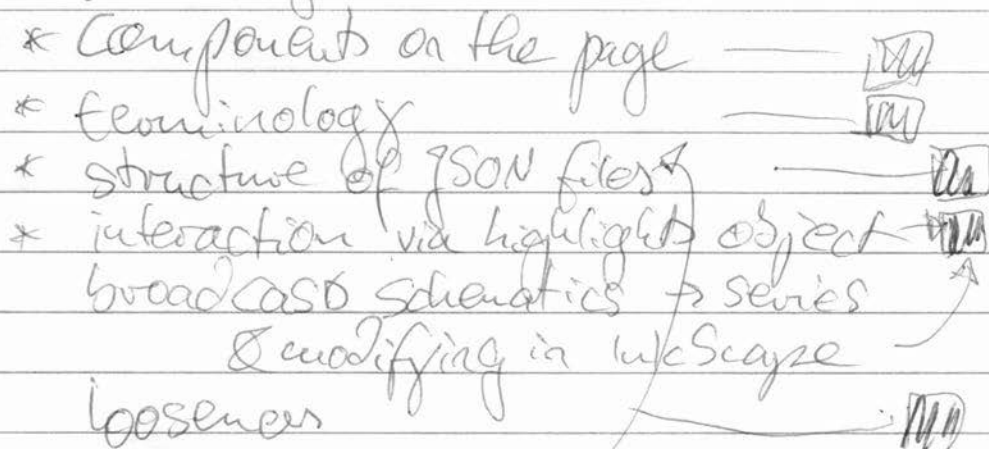 * Components on the page
* terminology
* structure of JSON files
* interaction via highlights object
broadcast schematics → series
& modifying in InkScape
looseness